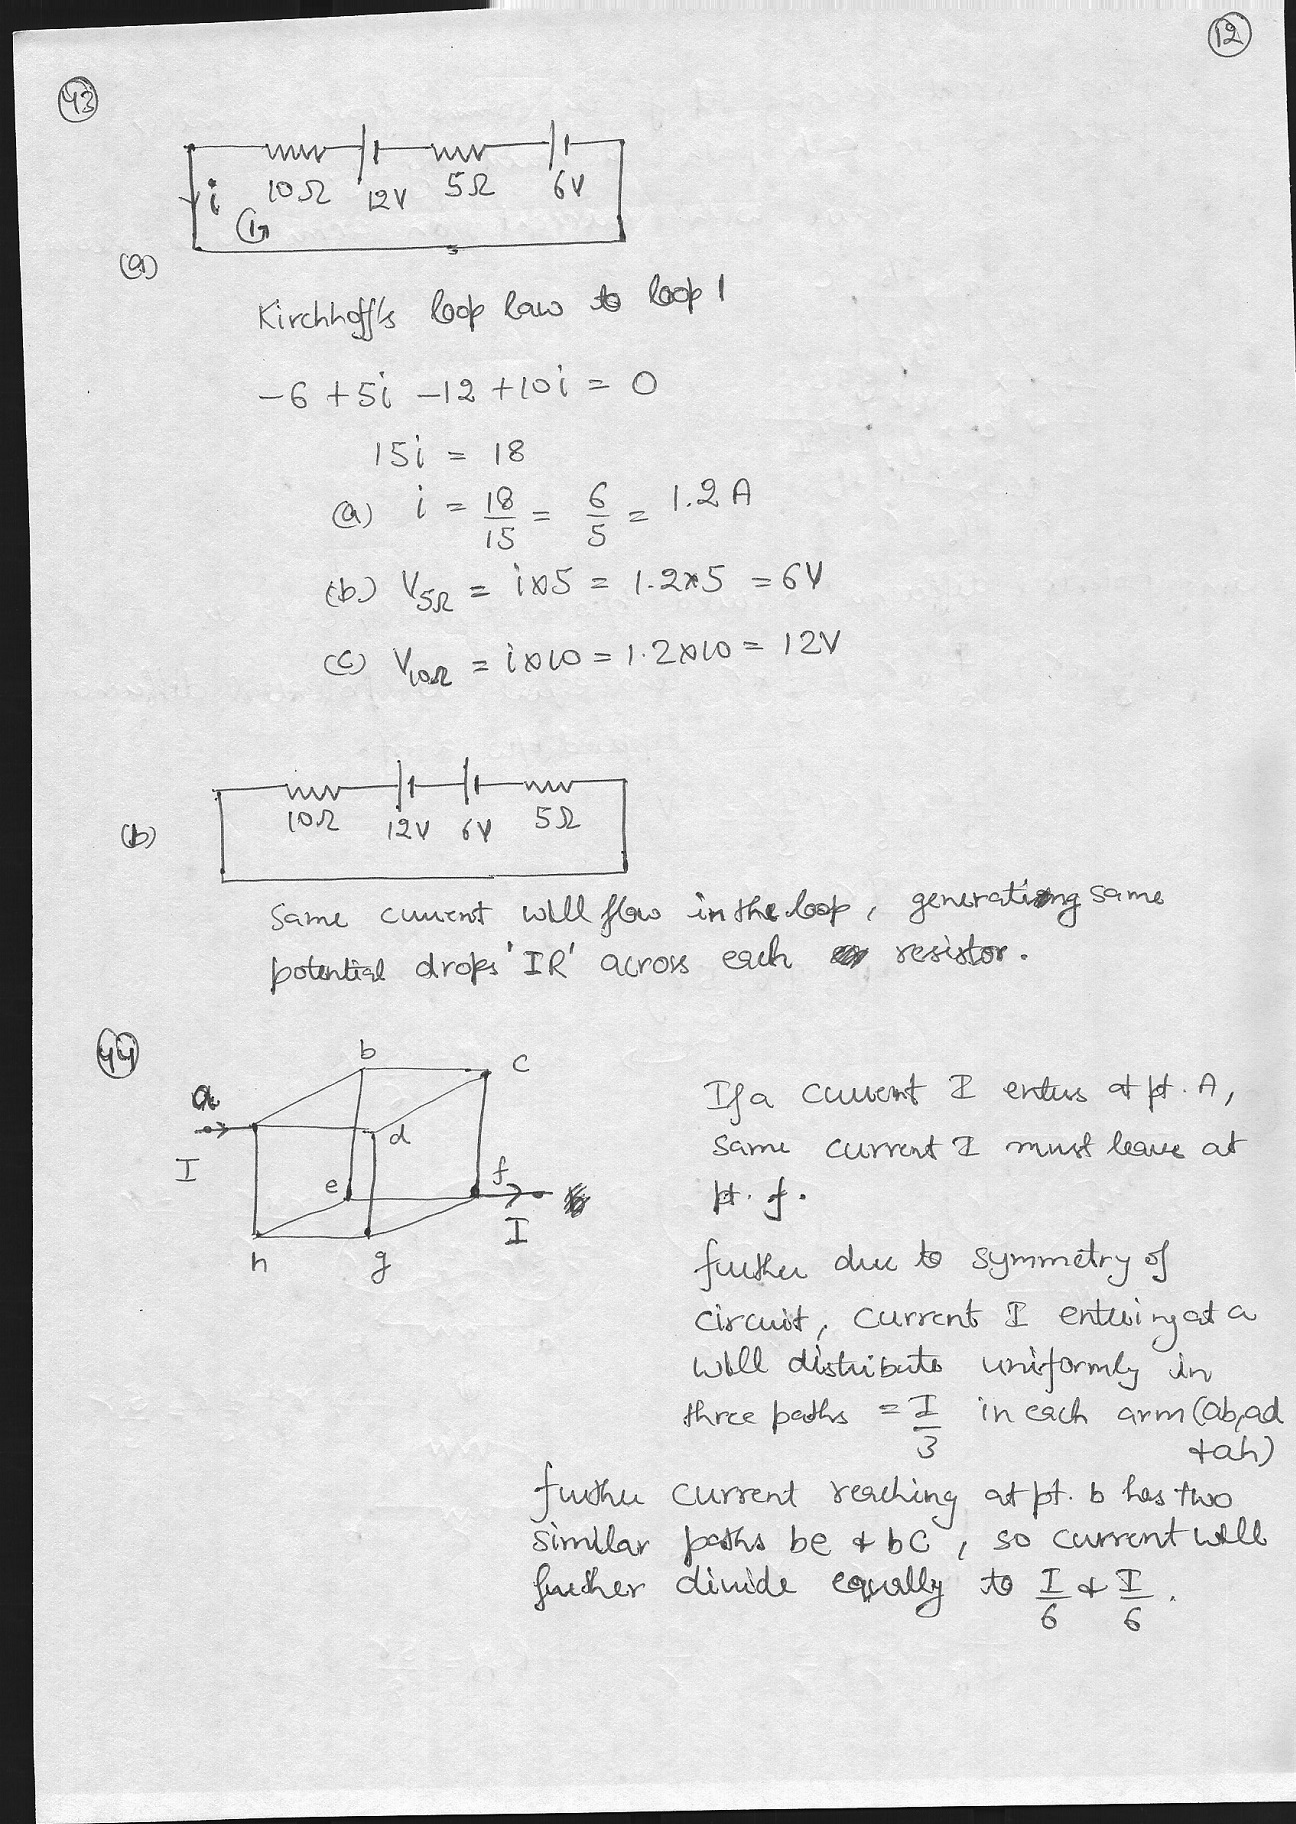 12
43
10Ω 12V 5Ω 6V
i
1
(a)
Kirchhoff's loop law to loop 1
-6 + 5i - 12 + 10i = 0
15i = 18
(a) i = 18/15 = 6/5 = 1.2 A
(b) V5Ω = i×5 = 1.2×5 = 6V
(c) V10Ω = i×10 = 1.2×10 = 12V
10Ω 12V 6V 5Ω
(b)
Same current will flow in the loop, generating same
potential drops 'IR' across each resistor.
44
b c
a
d
I
e f
I
h g
If a current I enters at pt. A,
same current I must leave at
pt. f.
further due to symmetry of
circuit, current I entering at a
will distribute uniformly in
three paths = I/3 in each arm (ab, ad
+ah)
further current reaching at pt. b has two
similar paths be & bC, so current will
further divide equally to I/6 & I/6.